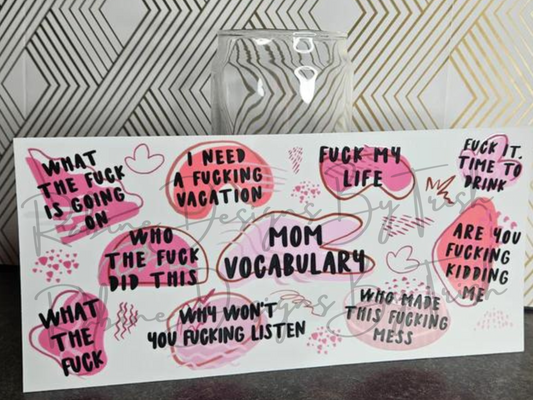 WHAT
THE FUCK
IS GOING
ON
I NEED
A FUCKING
VACATION
FUCK MY
LIFE
FUCK IT.
TIME TO
DRINK
WHO
THE FUCK
DID THIS
MOM
VOCABULARY
ARE YOU
FUCKING
KIDDING
ME
WHAT
THE
FUCK
WHY WON'T
YOU FUCKING LISTEN
WHO MADE
THIS FUCKING
MESS
Designs By Trish
Designs By Trish